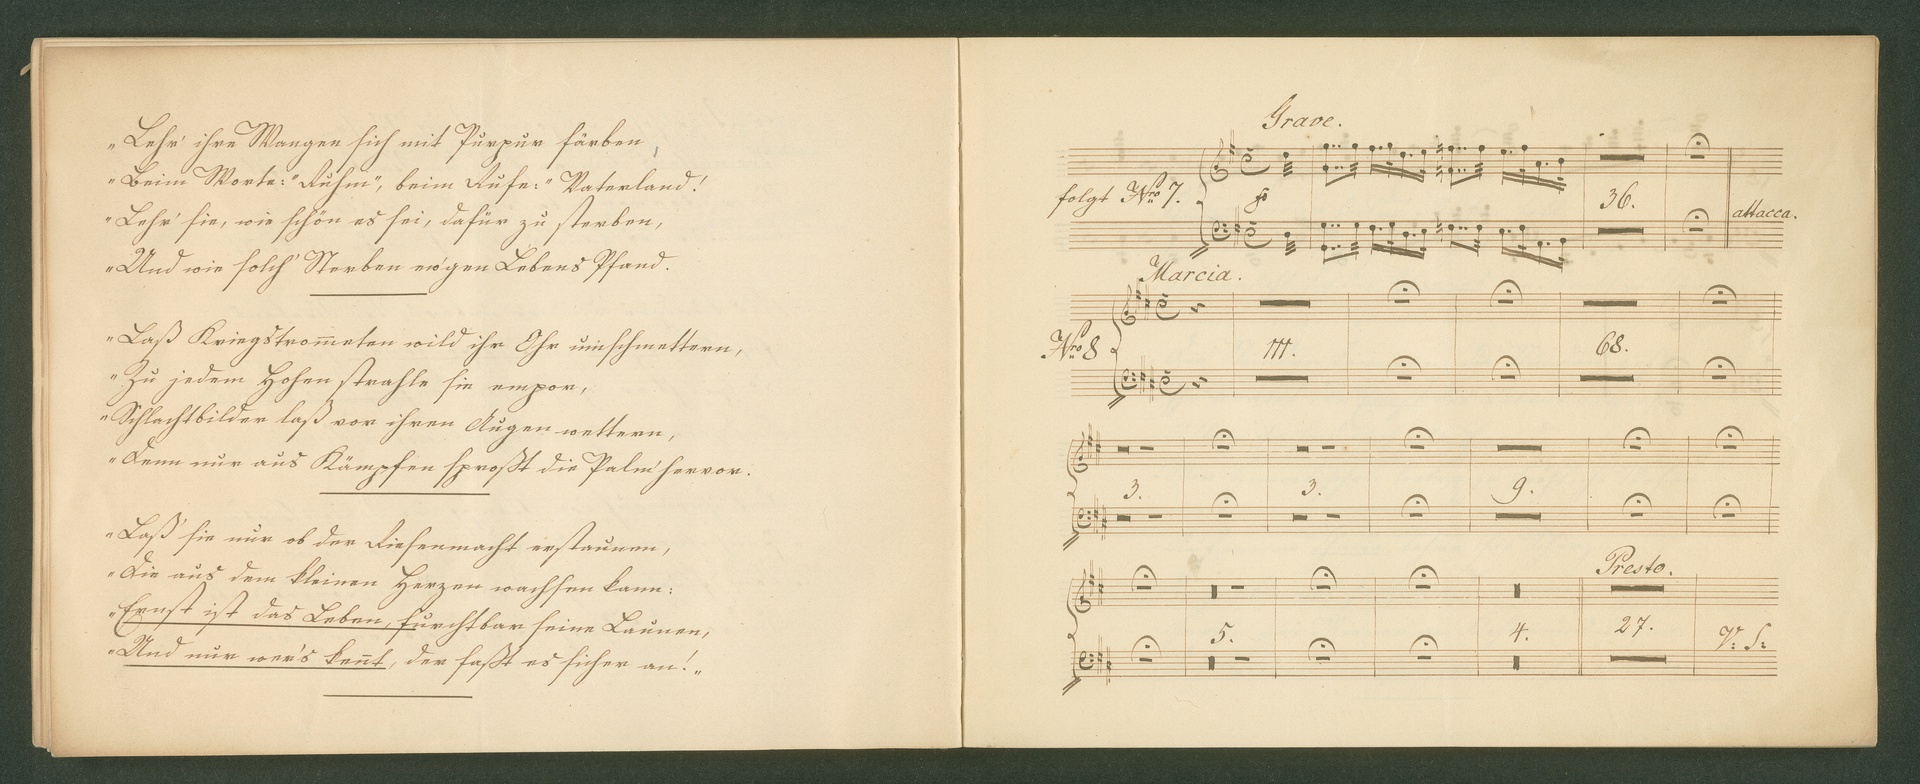 „Lehr' ihre Wangen sich mit Purpur färben,
„Beim Worte: "Ruhm", beim Rufe: "Vaterland!
„Lehr' sie, wie schön es sei, dafür zu sterben,
„Und wie solch' Sterben ew'gen Lebens Pfand.
„Laß Kriegstrom̅eten wild ihr Ohr umschmettern,
„Zu jedem Hohen strahle sie empor,
„Schlachtbilder laß vor ihren Augen wettern,
„Denn nur aus Kämpfen sproßt die Palm' hervor.
„Laß' sie nur ob der Riesenmacht erstaunen,
„Die aus dem kleinen Herzen wachsen kann:
„Ernst ist das Leben, furchtbar seine Launen,
„Und nur wer's kennt, der faßt es sicher an!„
Grave.
folgt Nro 7.
36.
attacca.
Marcia.
Nro 8
111.
68.
3.
3.
9.
Presto.
5.
4.
27.
V: S: